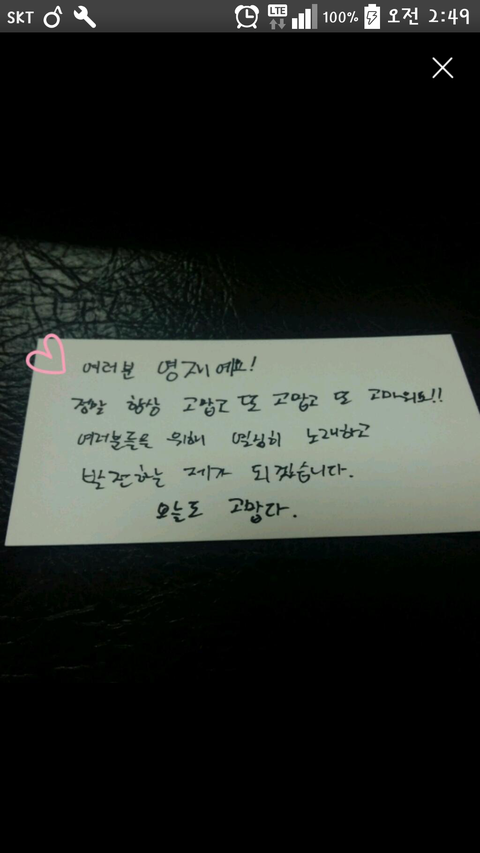 SKT LTE 100% 오전 2:49
여러분 영재예요!
정말 항상 고맙고 또 고맙고 또 고마워요!!
여러분들을 위해 열심히 노래하고
발전하는 제가 되겠습니다.
오늘도 고맙다.